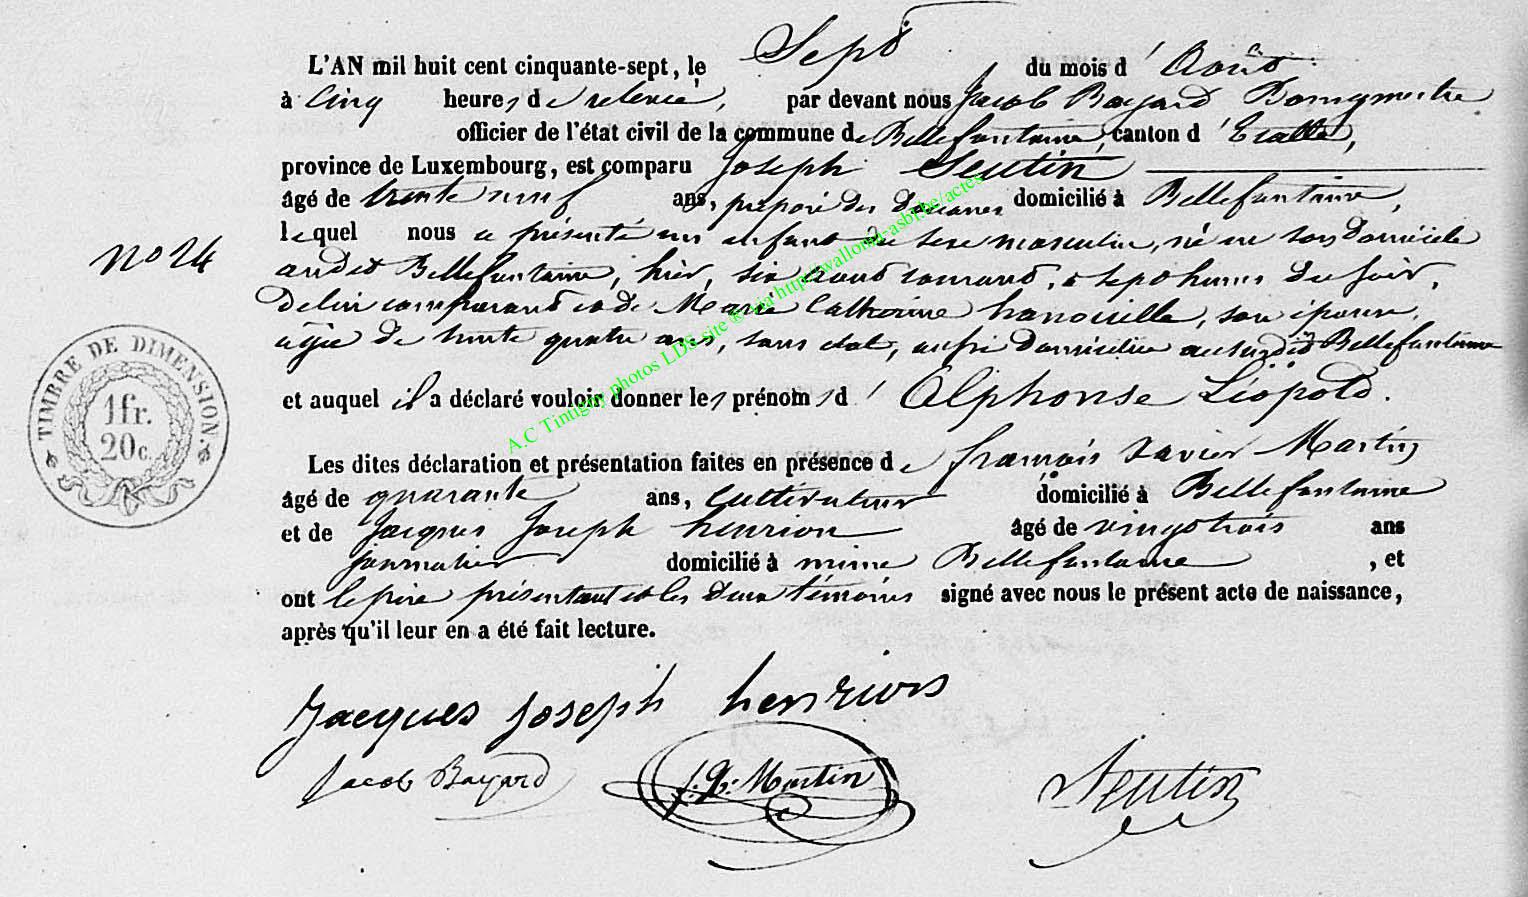 L'AN mil huit cent cinquante-sept, le Sept du mois d' Août
à Cinq heures de relevée, par devant nous Jacob Bayard Bourgmestre
officier de l'état civil de la commune de Bellefontaine, canton d' Etalle,
province de Luxembourg, est comparu Joseph Seutin
âgé de trente neuf ans, préposé des douanes domicilié à Bellefontaine,
lequel nous a présenté un enfant du sexe masculin, né en son domicile
audit Bellefontaine, hier, six août courant, à sept heures du soir,
No 24
de lui comparant et de Marie Catherine hanouille, son épouse,
agée de trente quatre ans, sans état, aussi domiciliée au susdit Bellefontaine
et auquel il a déclaré vouloir donner les prénoms d' Alphonse Léopold.
TIMBRE DE DIMENSION.
1fr.
20c.
Les dites déclaration et présentation faites en présence de françois Xavier Martin
âgé de quarante ans, cultivateur domicilié à Bellefontaine
et de Jacques Joseph henrion âgé de vingt trois ans
journalier domicilié à même Bellefontaine, et
ont le père présentant et les deux témoins signé avec nous le présent acte de naissance,
après qu'il leur en a été fait lecture.
Jacques joseph henrion
Jacob Bayard
Martin
Seutin
A.C Tintigny photos LDS site ® via http://wallonia-asbl.be/actes